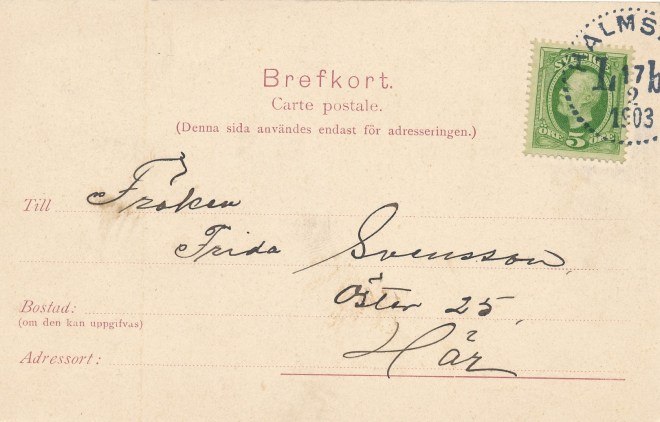 Brefkort.
Carte postale.
(Denna sida användes endast för adresseringen.)
SVERIGE
ÖRE 5 ÖRE
ALMS
L 17 b
2
1903
Till Fröken
Frida Svensson,
Öster 25,
Bostad:
(om den kan uppgifvas)
Adressort: Här